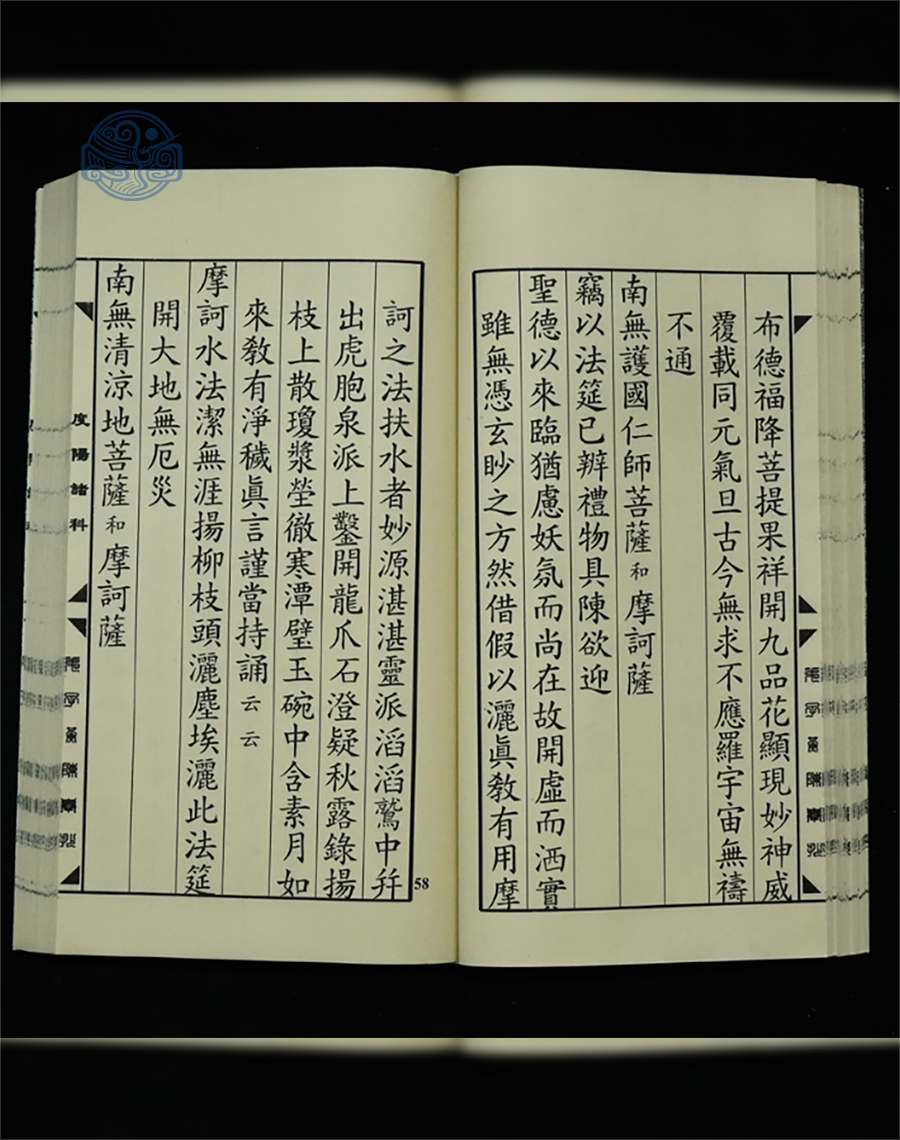 布德福降菩提果祥開九品花顯現妙神威
覆載同元氣旦古今無求不應羅宇宙無禱
不通
南無護國仁師菩薩和摩訶薩
竊以法筵已辦禮物具陳欲迎
聖德以來臨猶慮妖氛而尚在故開虛而洒實
雖無憑玄眇之方然借假以灑眞教有用摩
訶之法扶水者妙源湛湛靈派滔滔鷲中幷
出虎胞泉派上鑿開龍爪石澄疑秋露錄揚
枝上散瓊漿瑩徹寒潭璧玉碗中含素月如
來教有淨穢眞言謹當持誦云云
摩訶水法潔無涯揚柳枝頭灑塵埃灑此法筵
開大地無厄災
南無清涼地菩薩和摩訶薩
度陽諸科
58